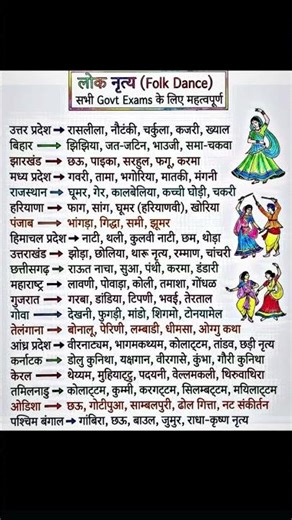 लोक नृत्य (Folk Dance)
सभी Govt Exams के लिए महत्वपूर्ण
उत्तर प्रदेश → रासलीला, नौटंकी, चर्कुला, कजरी, ख्याल
बिहार → झिझिया, जत-जटिन, भाउजी, समा-चकवा
झारखंड → छऊ, पाइका, सरहुल, फगू, करमा
मध्य प्रदेश → गवरी, तामा, भगोरिया, मातकी, मंगनी
राजस्थान → घूमर, गेर, कालबेलिया, कच्ची घोड़ी, चकरी
हरियाणा → फाग, सांग, घूमर (हरियाणवी), खोरिया
पंजाब → भांगड़ा, गिद्धा, समी, झूमर
हिमाचल प्रदेश → नाटी, थली, कुलवी नाटी, छम, थोड़ा
उत्तराखंड → झोड़ा, छोलिया, थारू नृत्य, रम्माण, चांचरी
छत्तीसगढ़ → राऊत नाचा, सुआ, पंथी, करमा, डंडारी
महाराष्ट्र → लावणी, पोवाड़ा, कोली, तमाशा, गोंधळ
गुजरात → गरबा, डांडिया, टिपणी, भवई, तेरताल
गोवा → देखनी, फुगड़ी, मांडो, शिगमो, टोनयामेल
तेलंगाना → बोनालू, पेरिणी, लम्बाडी, धीमसा, ओग्गु कथा
आंध्र प्रदेश → वीरनाट्यम, भागमकथ्यम, कोलाट्टम, तांडव, छड़ी नृत्य
कर्नाटक → डोलु कुनिथा, यक्षगान, वीरगासे, कुंभा, गौरी कुनिथा
केरल → थेय्यम, मुहियाट्टु, पदयनी, वेल्लमकली, थिरुवाथिरा
तमिलनाडु → कोलाट्टम, कुम्मी, करगट्टम, सिलम्बट्टम, मयिलाट्टम
ओडिशा → छऊ, गोटीपुआ, साम्बलपुरी, ढोल गित्ता, नट संकीर्तन
पश्चिम बंगाल → गांबिरा, छऊ, बाउल, जुमुर, राधा-कृष्ण नृत्य